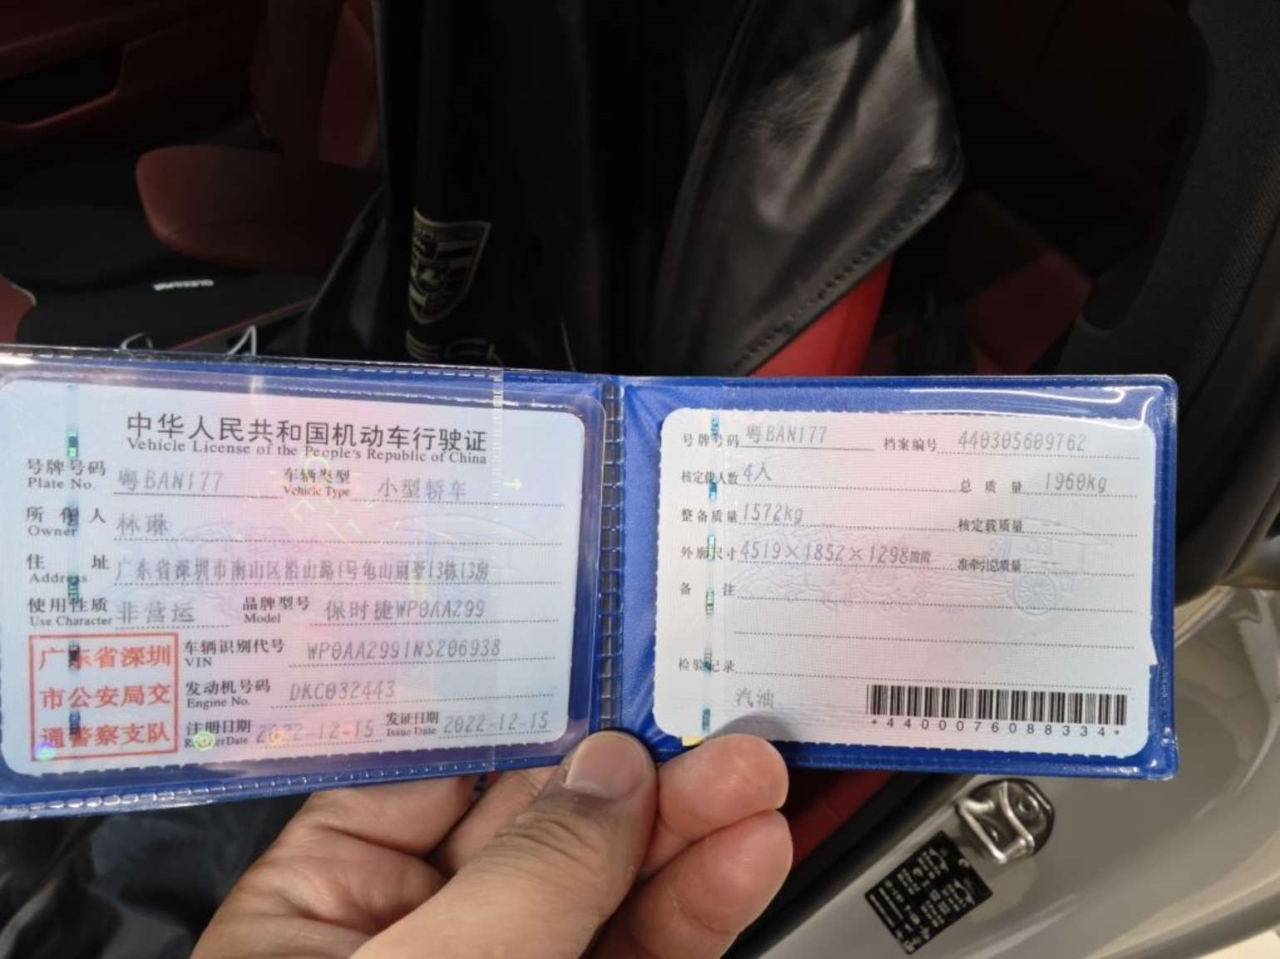 中华人民共和国机动车行驶证
Vehicle License of the People's Republic of China
号牌号码 粤BAN177 车辆类型 小型轿车
Plate No. Vehicle Type
所有人 林琳
Owner
住址 广东省深圳市南山区招山路1号龟山别墅13栋13房
Address
使用性质 非营运 品牌型号 保时捷WP0AA299
Use Character Model
车辆识别代号 WP0AA2991NS206938
VIN
发动机号码 DKC032443
Engine No.
注册日期 2022-12-15 发证日期 2022-12-15
Register Date Issue Date
广东省深圳
市公安局交
通警察支队
号牌号码 粤BAN177 档案编号 440305609762
核定载人数 4人 总质量 1960kg
整备质量 1572kg 核定载质量
外廓尺寸 4519×1852×1298mm 准牵引总质量
备注
检验记录
汽油
*4400076088334*